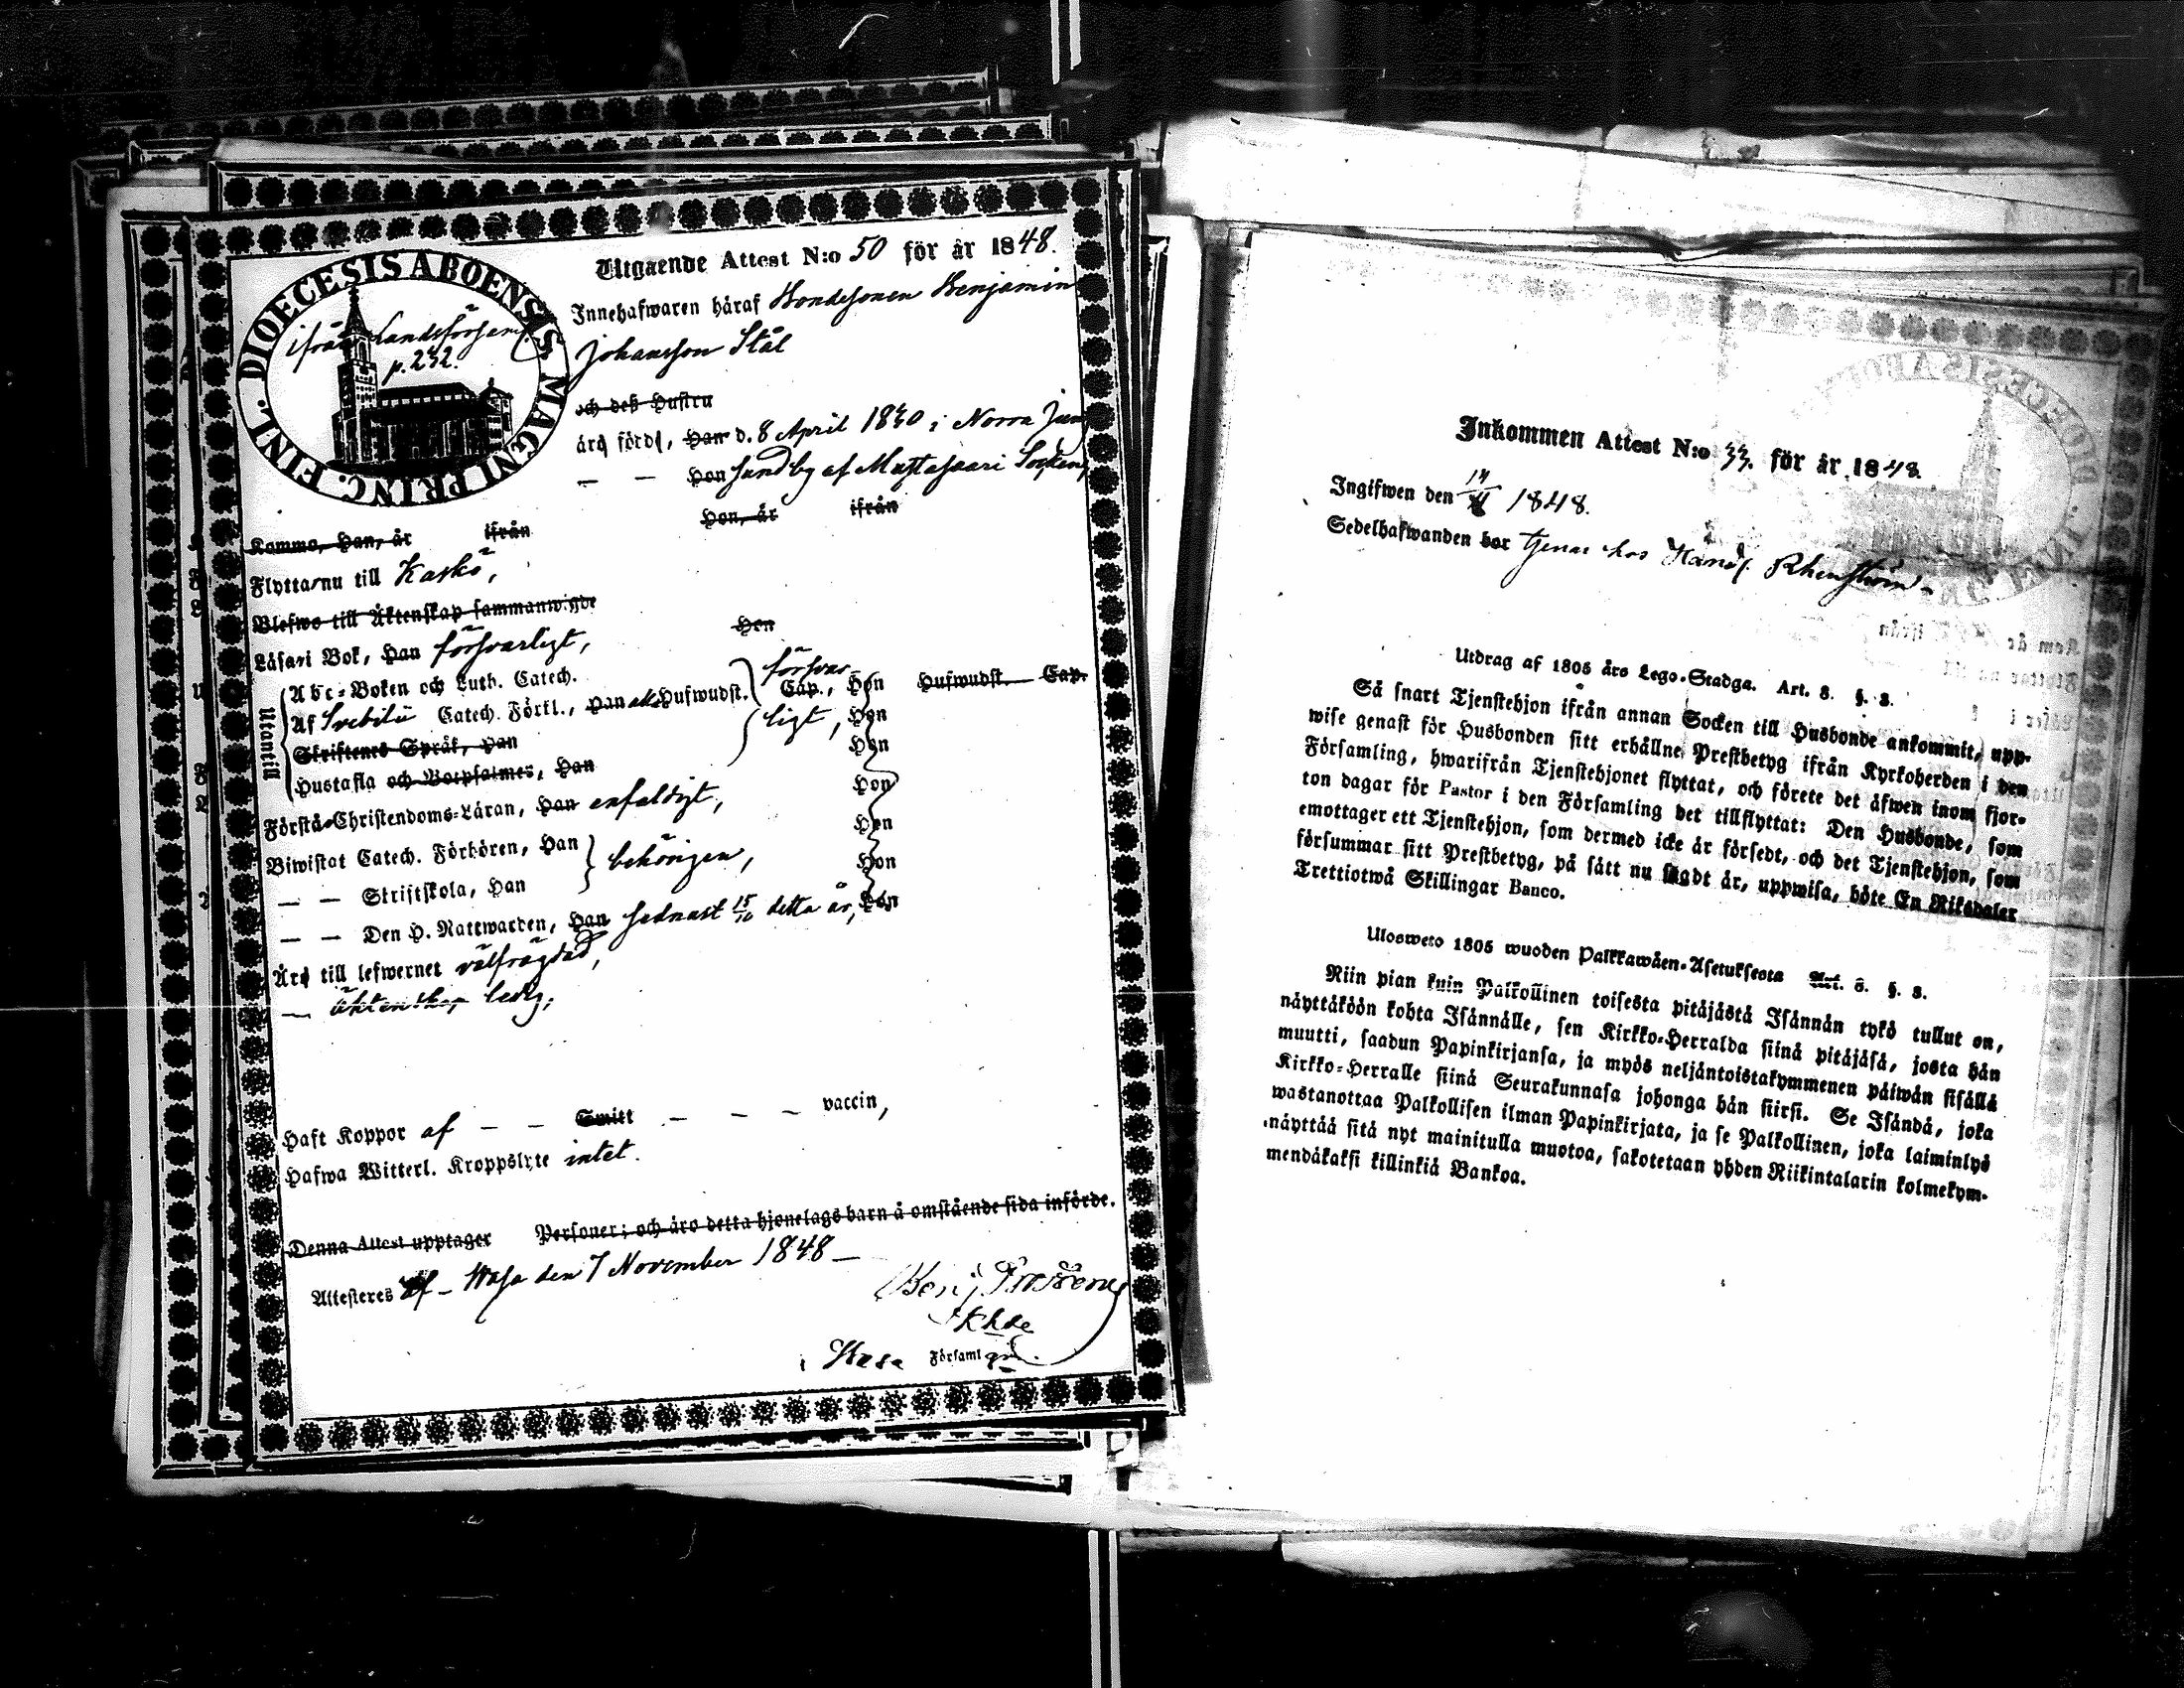 DIOECESIS ABOENSIS MAGNI PRINC. FINL.
ifrån Landsförsaml.
p. 232.
Utgaende Attest N:o 50 för år 1848.
Innehafwaren håraf Bondesonen Benjamin
Johansson Stål
och deß Hustru
äro född, Han d. 8 April 1830 i Norra Jung
— — Hon sund by af Mustasaari Socken,
Komma, Han, år ifrån Hon, år ifrån
Flytta nu till Kaskö,
Blefwo till Äktenskap sammanwigde
Låsa i Bok, Han försvarligt, Hon
Utantill
Abc-Boken och Luth. Catech.
Af Svebilii Catech. Förkl., Han Hufwudst. Cap., Hon Hufwudst. Cap.
försvar-
ligt, Hon
Skriftenes Språk, Han Hon
Hustafla och Botpsalmer, Han Hon
Förstå Christendoms-Låran, Han enfaldigt, Hon
Biwistat Catech. Förhören, Han behörigen, Hon
— — Skriftskola, Han
— — Den H. Nattwarden, Han sednast 15/10 detta år, Hon
Åro till lefwernet välfrägdad,
— äktenskap ledig,
Haft Koppor af — — Smitt — — — vaccin,
Hafwa Witterl. Kroppslyte intet.
Denna Attest upptager Personer; och åro detta hjonelags barn å omstående sida införde.
Attesteres af — Wasa den 7 November 1848 —
Benj.
i Wasa Församl
Inkommen Attest N:o 33. för år 1848.
Ingifwen den 1848.
Sedelhafwanden bor tjenar hos Handl. Rhenström.
Utdrag af 1805 års Lego-Stadga. Art. 8. §. 8.
Så snart Tjenstehjon ifrån annan Socken till Husbonde ankommit, upp-
wise genast för Husbonden sitt erhållne Prestbetyg ifrån Kyrkoherden i den
Församling, hwarifrån Tjenstehjonet flyttat, och förete det åfwen inom fjor-
ton dagar för Pastor i den Församling det tillflyttat: Den Husbonde, som
emottager ett Tjenstehjon, som dermed icke år försedt, och det Tjenstehjon, som
försummar sitt Prestbetyg, på sått nu sagdt år, uppwisa, böte En Riksdaler
Trettiotwå Skillingar Banco.
Ulosweto 1805 wuoden Palkkawåen-Asetuksesta Art. 8. §. 8.
Niin pian kuin Palkollinen toisesta pitåjåstå Isånnån tykö tullut on,
nåyttåköön kohta Isånnålle, sen Kirkko-Herralda siinå pitåjåså, josta hån
muutti, saadun Papinkirjansa, ja myös neljåntoistakymmenen påiwån sisållå
Kirkko-Herralle siinå Seurakunnasa johonga hån siirsi. Se Isåndå, joka
wastanottaa Palkollisen ilman Papinkirjata, ja se Palkollinen, joka laiminlyö
nåyttåå sitå nyt mainitulla muotoa, sakotetaan yhden Riikintalarin kolmekym-
mendåkaksi killinkiå Bankoa.